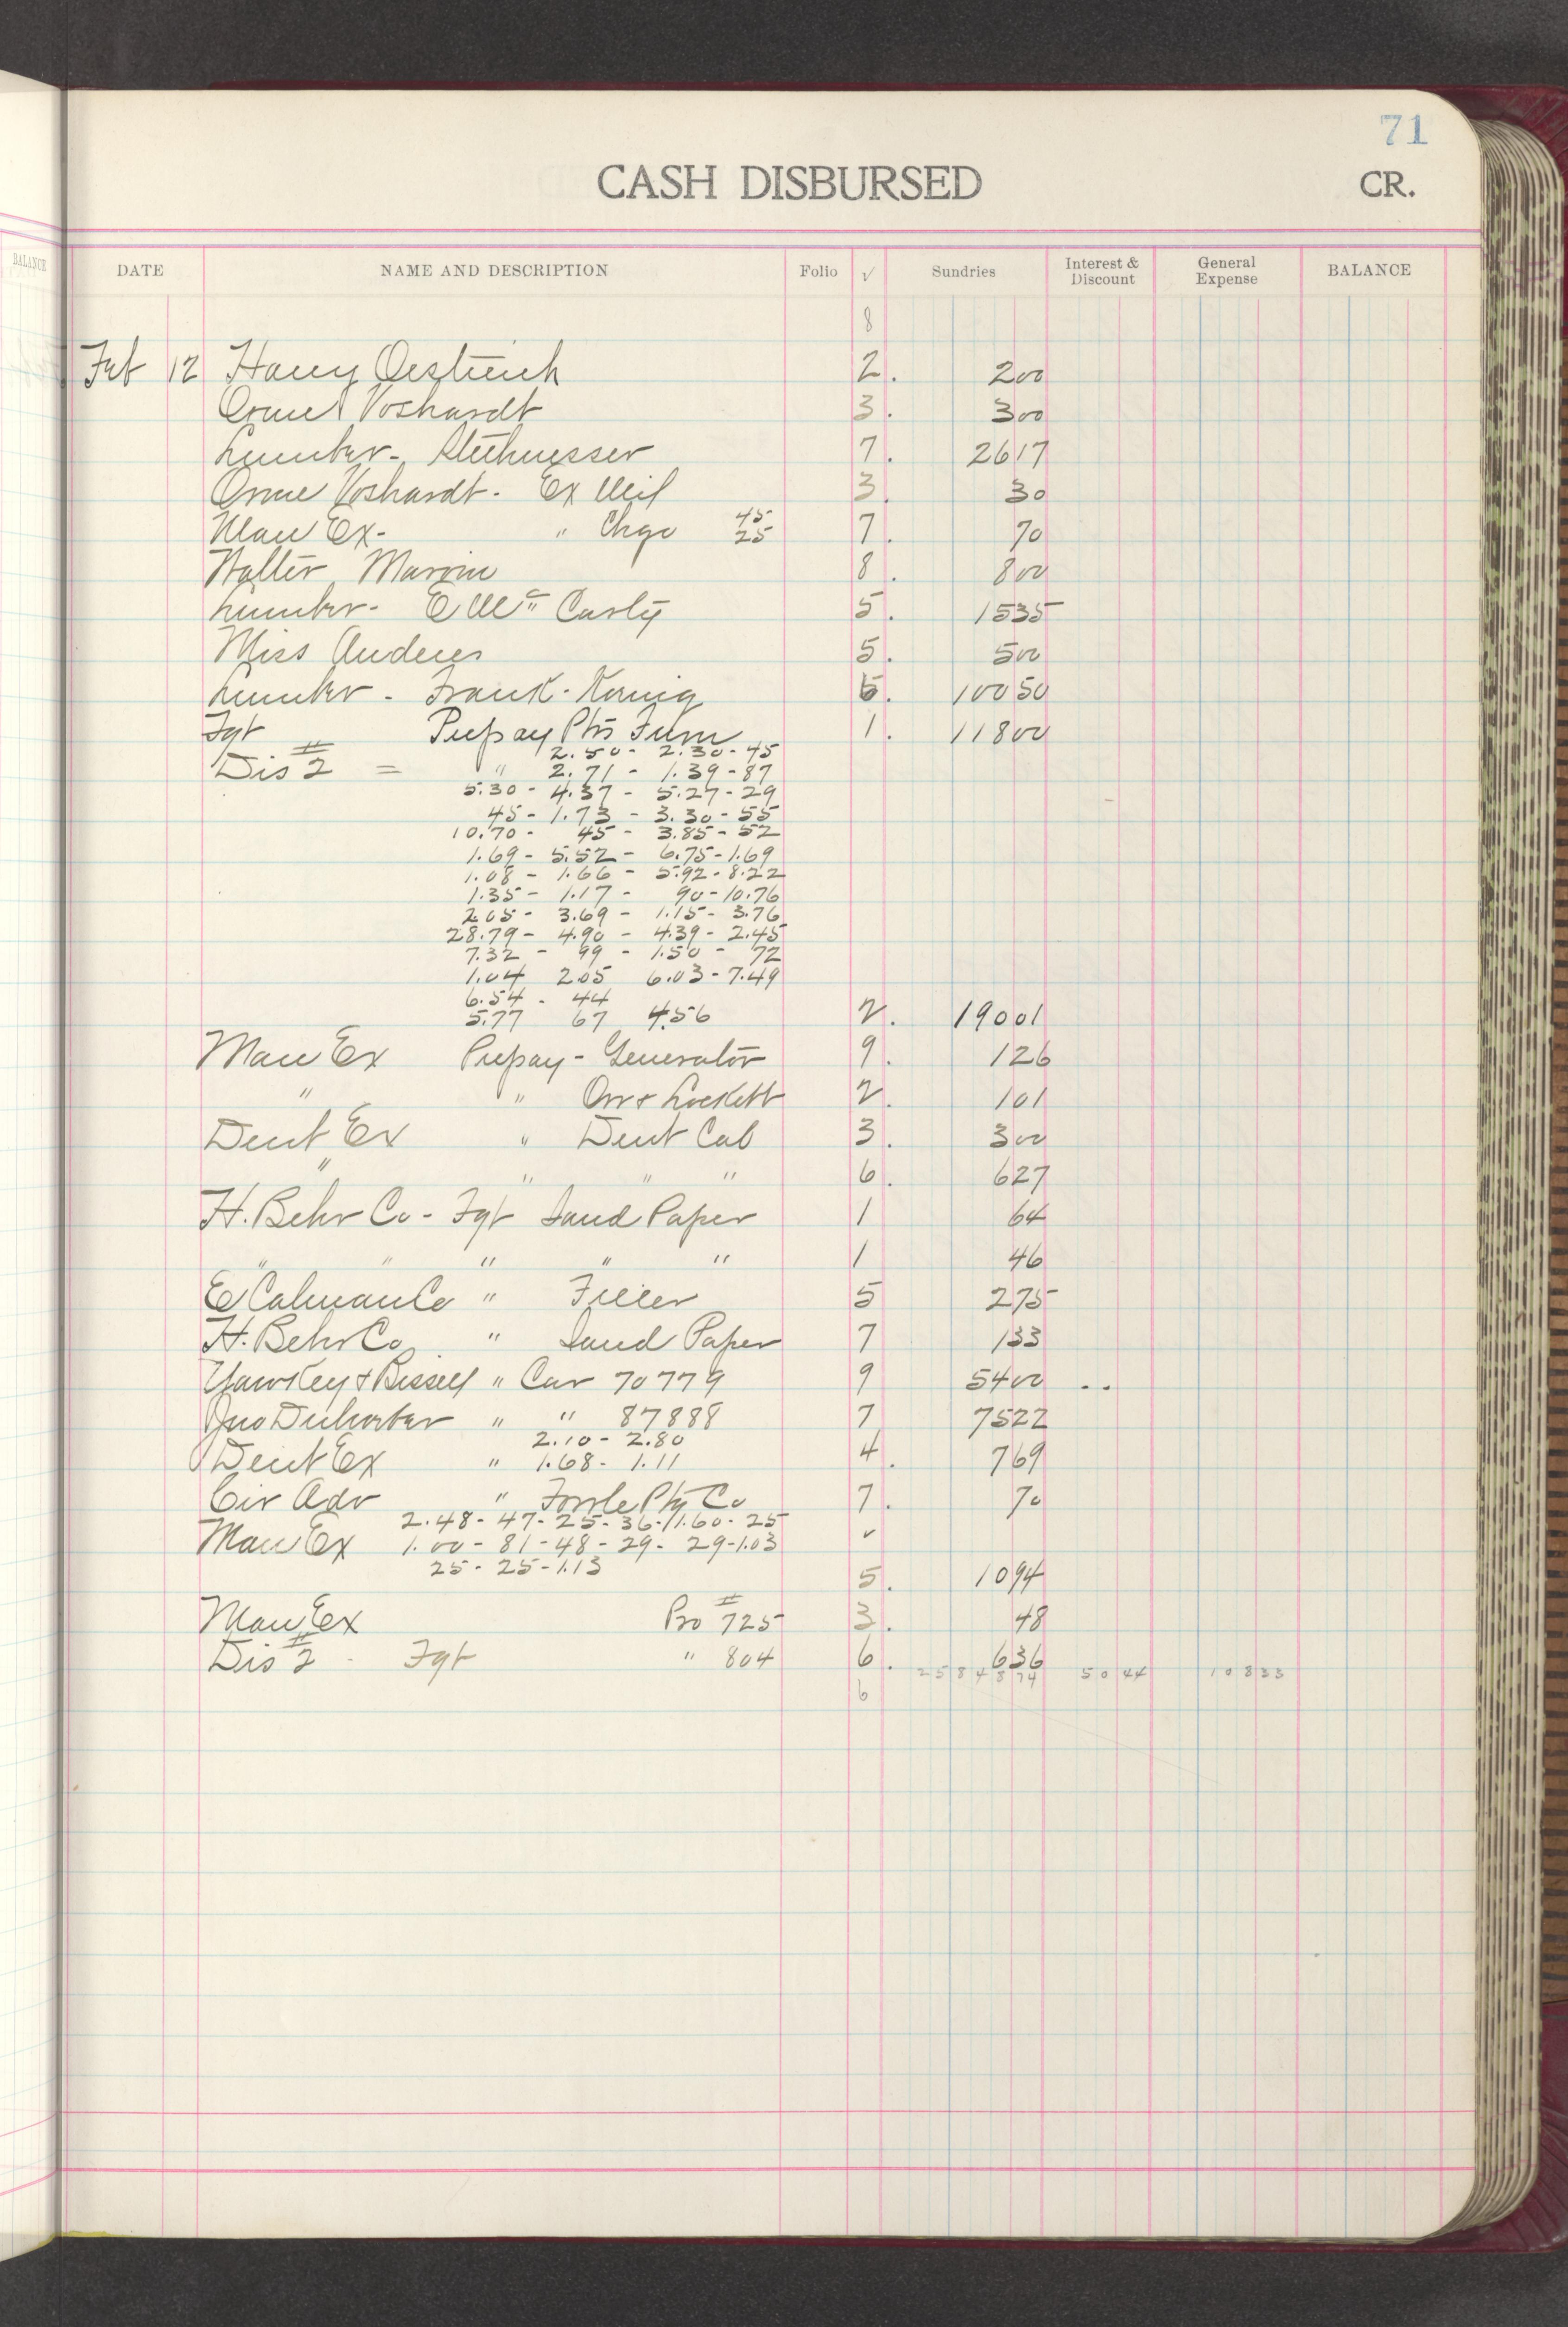 71
CASH DISBURSED CR.
BALANCE DATE NAME AND DESCRIPTION Folio √ Sundries Interest & Discount General Expense BALANCE
8
Feb 12 Harry Oestreich 2. 2 00
Orme Voshardt 3. 3 00
Lumber - 7. 26 17
Orme Voshardt - Ex Mil 3. 30
45
Man Ex - " Chgo 25 7. 70
Walter Marvin 8. 8 00
Lumber - E Mc Carty 5. 15 35
Miss Anderes 5. 5 00
Lumber - Frank Koenig 5. 100 50
Fgt Prepay Pts Furn 1. 118 00
2.50 - 2.30 - 45
Dis #2 = " 2.71 - 1.39 - 87
5.30 - 4.37 - 5.27 - 29
45 - 1.73 - 3.30 - 55
10.70 - 45 - 3.85 - 52
1.69 - 5.52 - 6.75 - 1.69
1.08 - 1.66 - 5.92 - 8.22
1.35 - 1.17 - 90 - 10.76
2.05 - 3.69 - 1.15 - 3.76
28.79 - 4.90 - 4.39 - 2.45
7.32 - 99 - 1.50 - 72
1.04 2.05 6.03 - 7.49
6.54 - 44
5.77 67 4.56 2. 190 01
Man Ex Prepay - Generator 9. 1 26
" " Orr & Lockett 2. 1 01
Dent Ex " Dent Cab 3. 3 00
" " " " 6. 6 27
H. Behr Co - Fgt Sand Paper 1 64
" " " " " 1 46
E Calman Co " Filler 5 2 75
H. Behr Co " Sand Paper 7 1 33
Yawkey & Bissell " Car 70779 9 54 00 ..
Jno " " 87888 7 75 22
2.10 - 2.80
Dent Ex " 1.68 - 1.11 4. 7 69
Cir Adv " Ptg Co 7. 70
2.48 - 47 - 25 - 36 - 1.60 - 25
Man Ex 1.00 - 81 - 48 - 29 - 29 - 1.03 ✓
25 - 25 - 1.13 5. 10 94
Man Ex Pro #725 3. 48
Dis #2 - Fgt " 804 6. 6 36
25848 74 50 44 108 33
6